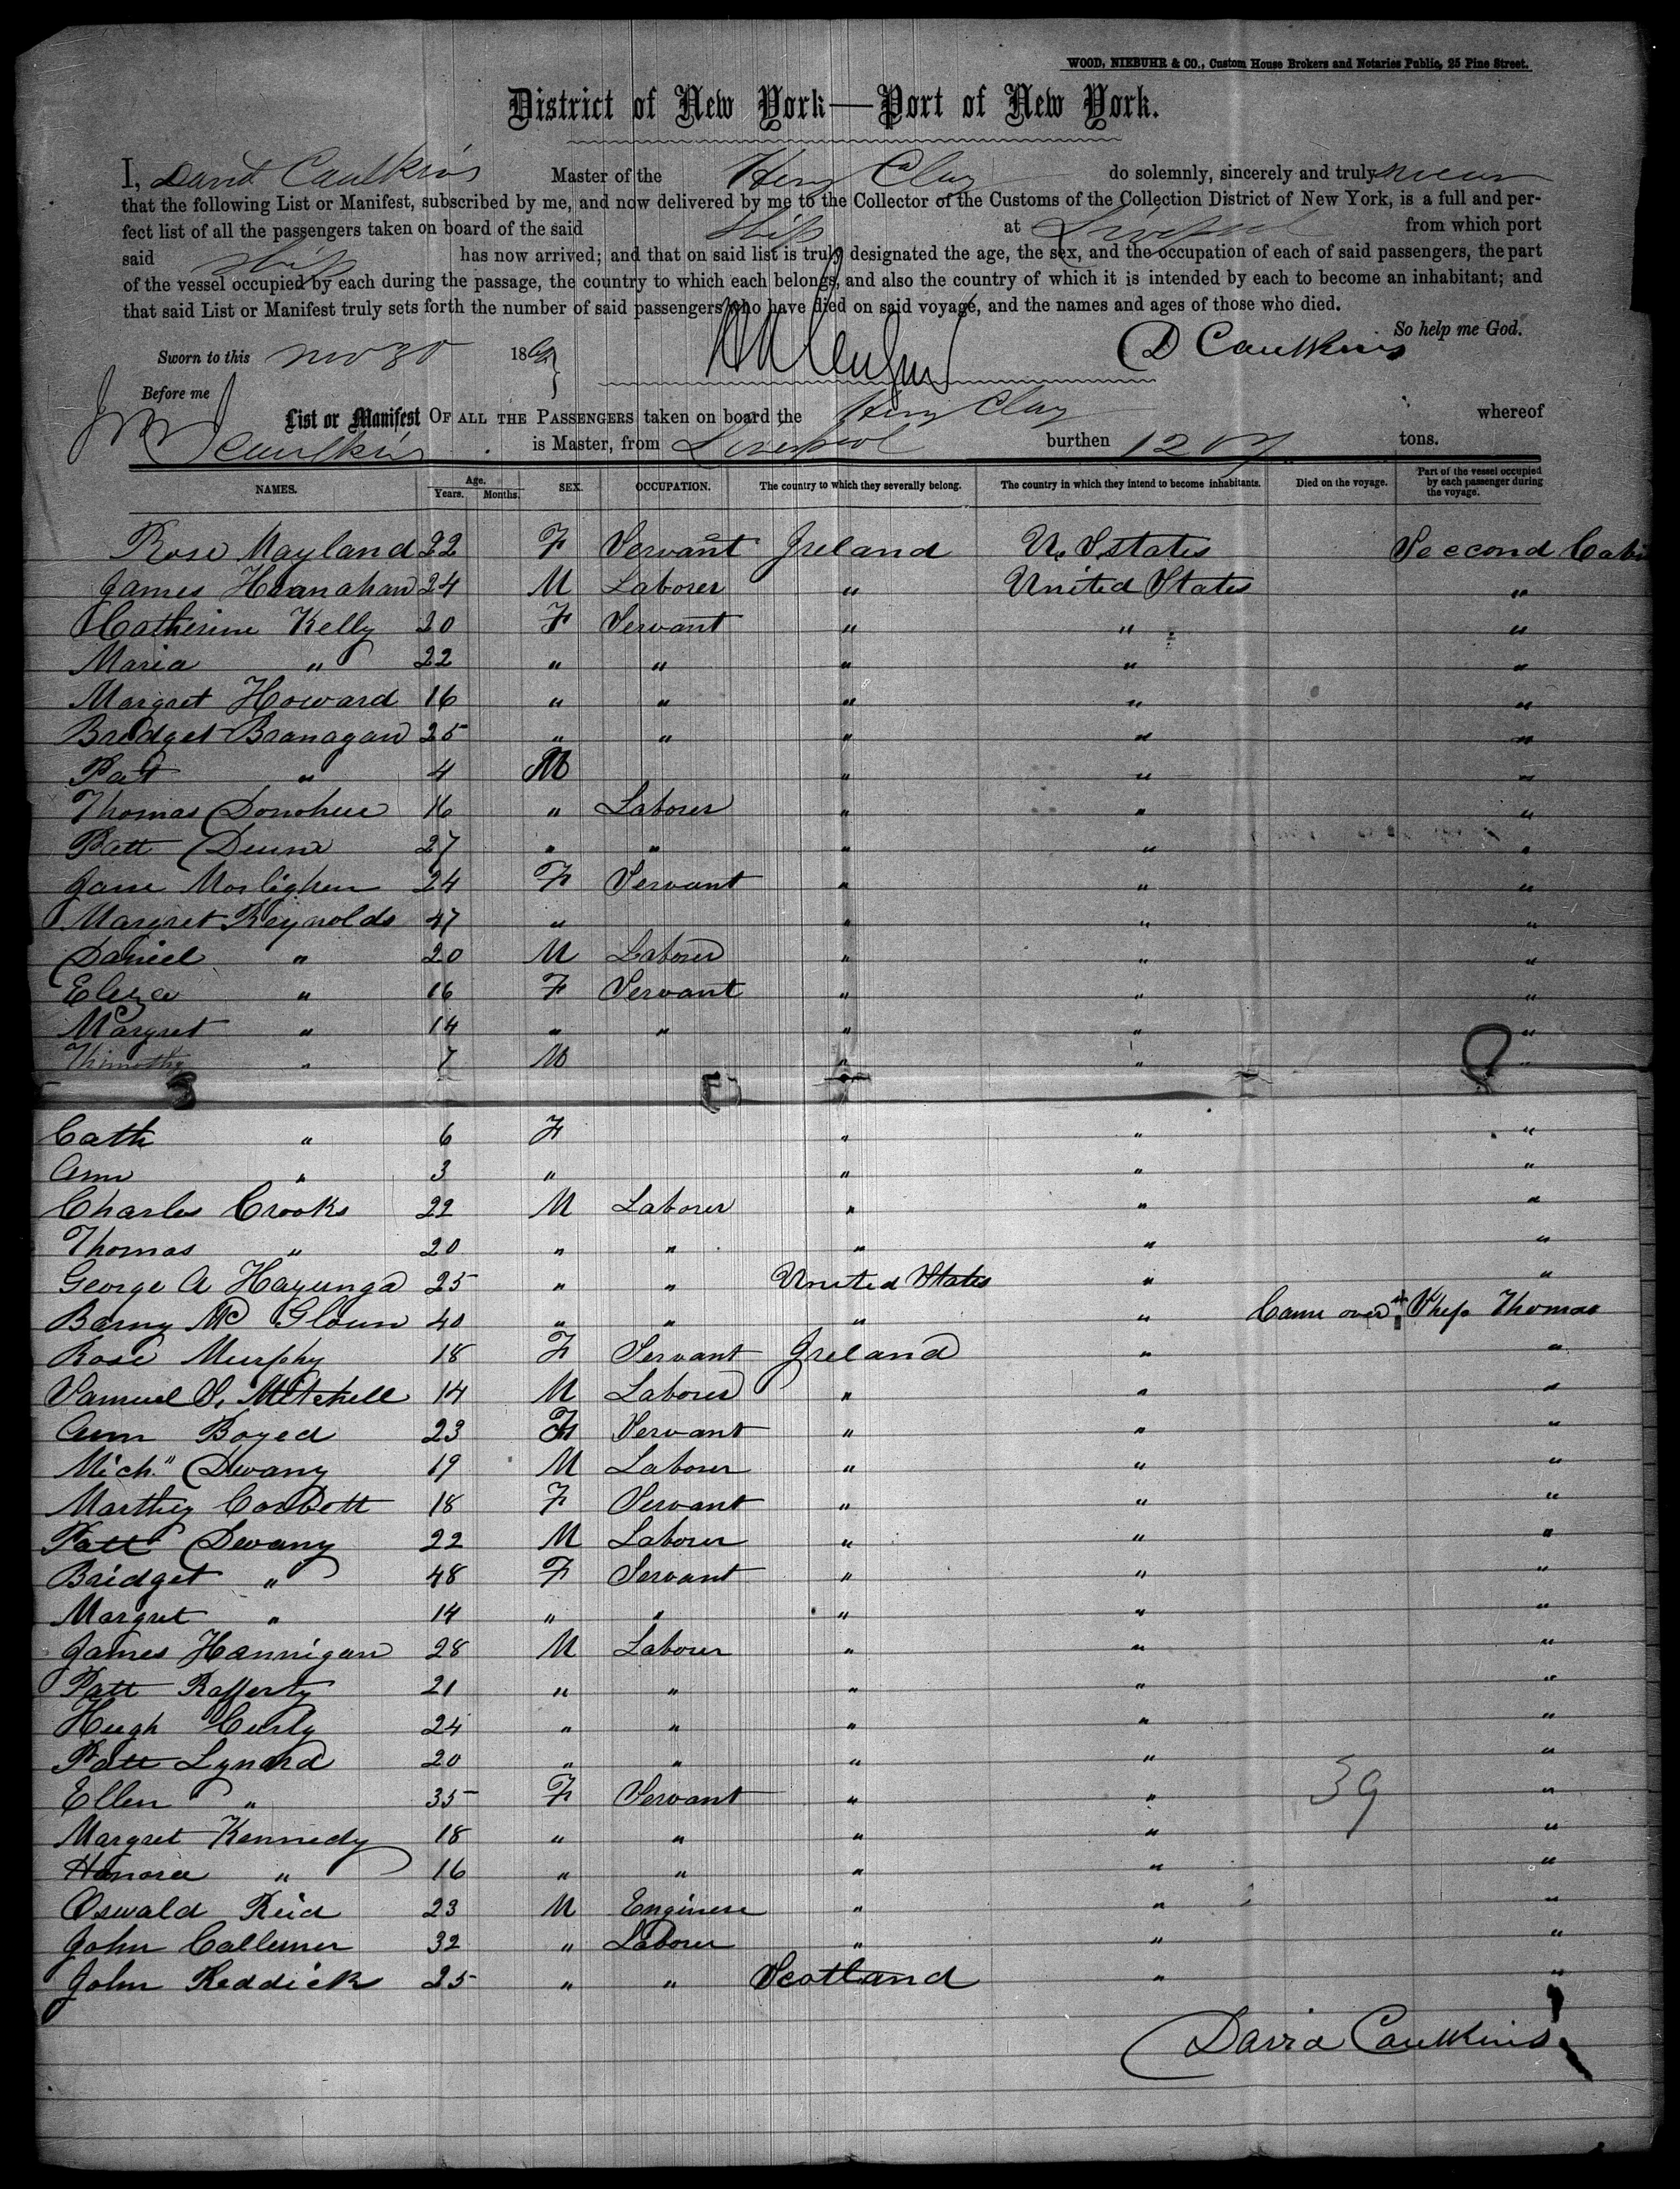 WOOD, NIEBUHR & CO., Custom House Brokers and Notaries Public, 25 Pine Street.
District of New York—Port of New York.
I, David Caulkins Master of the Henry Clay do solemnly, sincerely and truly swear
that the following List or Manifest, subscribed by me, and now delivered by me to the Collector of the Customs of the Collection District of New York, is a full and per-
fect list of all the passengers taken on board of the said Ship at Liverpool from which port
said Ship has now arrived; and that on said list is truly designated the age, the sex, and the occupation of each of said passengers, the part
of the vessel occupied by each during the passage, the country to which each belongs, and also the country of which it is intended by each to become an inhabitant; and
that said List or Manifest truly sets forth the number of said passengers who have died on said voyage, and the names and ages of those who died.
So help me God.
Sworn to this Nov 30 186 D Caulkins
Before me
List or Manifest OF ALL THE PASSENGERS taken on board the Henry Clay whereof
Caulkins is Master, from Liverpool burthen 1207 tons.
NAMES. Age. Years. Months. SEX. OCCUPATION. The country to which they severally belong. The country in which they intend to become inhabitants. Died on the voyage. Part of the vessel occupied by each passenger during the voyage.
Rose Mayland 22 F Servant Ireland U. States Seecond Cabi
James Hranahan 24 M Laborer " United States "
Catherine Kelly 20 F Servant " " "
Maria " 22 " " " " "
Margret Howard 16 " " " " "
Bredget Branagan 25 " " " " "
Pat " 4 M " " "
Thomas Donohue 16 " Laborer " " "
Patt Dunn 27 " " " " "
Jane 24 F Servant " " "
Margret Reynolds 47 " " " "
Daniel " 20 M Laborer " " "
Eliza " 16 F Servant " " "
Margret " 14 " " " " "
Thimothy " 7 M " " "
Cath " 6 F " " "
Ann " 3 " " " "
Charles Crooks 22 M Laborer " " "
Thomas " 20 " " " " "
George A Hayunga 25 " " United States " "
Barny Mc Gloun 40 " " " " Came over in Ship Thomas
Rose Murphy 18 F Servant Ireland " "
Samuel S. Mitchell 14 M Laborer " " "
Ann Boyed 23 F Servant " " "
Mich." Dwany 19 M Laborer " " "
Marthy Corbett 18 F Servant " " "
Patt Dwany 22 M Laborer " " "
Bridget " 48 F Servant " " "
Margret " 14 " " " " "
James Hannigan 28 M Laborer " " "
Patt Rafferty 21 " " " " "
Hugh Curly 24 " " " " "
Patt Lynard 20 " " " " "
Ellen " 35 F Servant " " 39 "
Margret Kennedy 18 " " " " "
Honora " 16 " " " " "
Oswald Reid 23 M Engineer " " "
John Callemer 32 " Laborer " " "
John Reddick 25 " " Scotland " "
David Caulkins